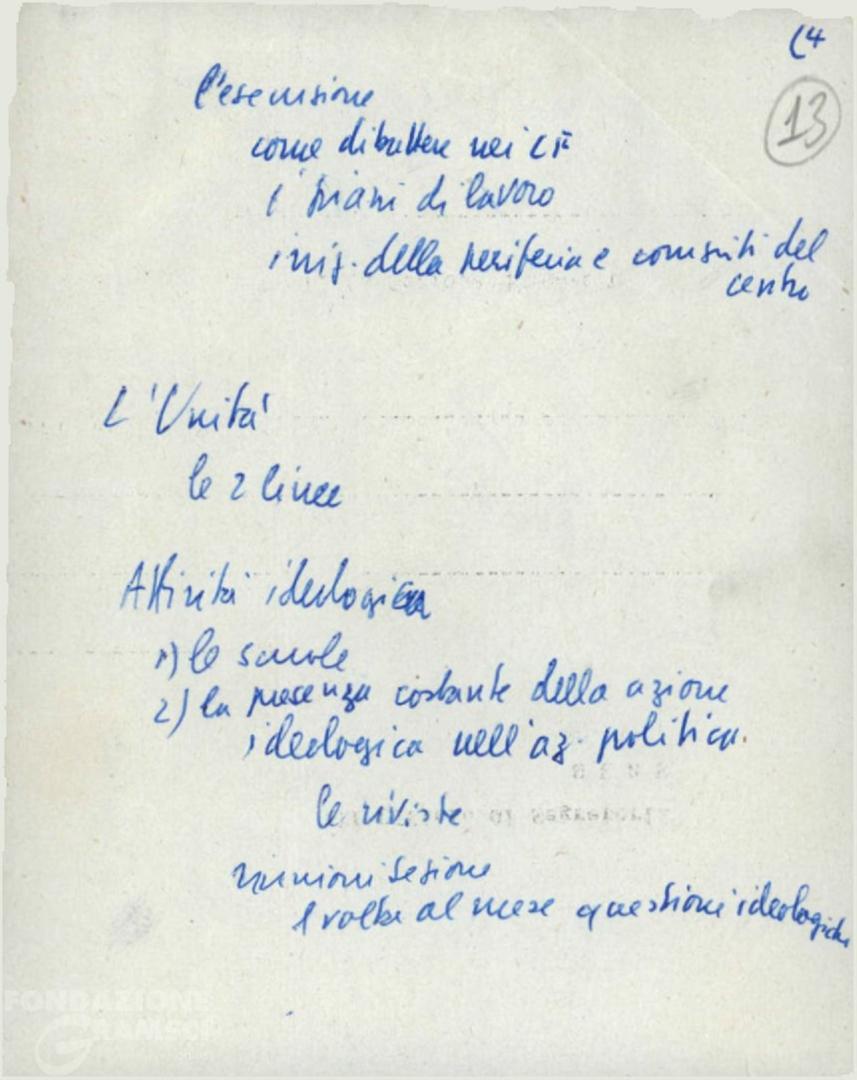 (4
13
l'esecuzione
come dibattere nei CF
i piani di lavoro
iniz. della periferia e compiti del
centro
L'Unità
le 2 linee
Attività ideologica
1) le scuole
2) la presenza costante della azione
ideologica nell'az. politica.
le riviste
riunioni Sezione
1 volta al mese questioni ideologiche
FONDAZIONE
GRAMSCI